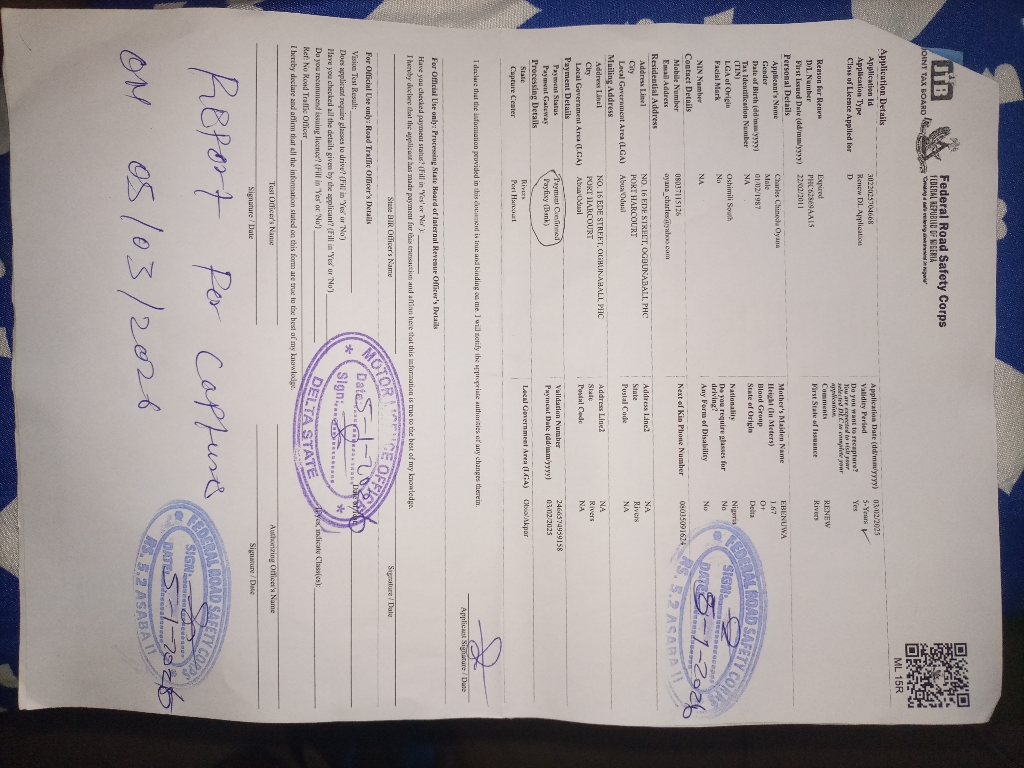 JTB
JOINT TAX BOARD
Federal Road Safety Corps
FEDERAL REPUBLIC OF NIGERIA
ML 15R
Application Details
Application Id 30220257394668 Application Date (dd/mm/yyyy) 03/02/2025
Application Type Renew DL Application Validity Period 5-Years
Class of Licence Applied for D Do you want to recapture? Yes
You are expected to visit your selected DLC to complete your application.
Comments RENEW
Reason for Renew Expired First State of Issuance Rivers
D/L Number
First Issued Date (dd/mm/yyyy) 22/02/2011
Personal Details
Applicant's Name Charles Chinedu Oyana Mother's Maiden Name
Gender Male Height (in Meters) 1.67
Date of Birth (dd/mm/yyyy) 01/02/1987 Blood Group O+
Tax Identification Number (TIN) NA State of Origin Delta
LGA of Origin Oshimili South Nationality Nigeria
Facial Mark No Do you require glasses for driving? No
NIN Number NA Any Form of Disability No
Contact Details
Mobile Number 08037115126 Next of Kin Phone Number 08035001624
Email Address oyana_charles@yahoo.com
Residential Address
Address Line1 NO. 16 EDE STREET, OGBUNABALI, PHC Address Line2 NA
City PORT HARCOURT State Rivers
Local Government Area (LGA) Abua/Odual Postal Code NA
Mailing Address
Address Line1 NO. 16 EDE STREET, OGBUNABALI, PHC Address Line2 NA
City PORT HARCOURT State Rivers
Local Government Area (LGA) Abua/Odual Postal Code NA
Payment Details
Payment Status Payment Confirmed Validation Number 2466574959158
Payment Gateway Payfixy (Bank) Payment Date (dd/mm/yyyy) 03/02/2025
Processing Details
State Rivers Local Government Area (LGA) Obio/Akpor
Capture Center Port Harcourt
I declare that the information provided in this document is true and binding on me. I will notify the appropriate authorities of any changes therein.
Applicant Signature / Date
For Official Use only: Processing State Board of Internal Revenue Officer's Details
Have you checked payment status? (Fill in 'Yes' or 'No' ):
I hereby declare that the applicant has made payment for this transaction and affirm here that this information is true to the best of my knowledge.
State BIR Officer's Name Signature / Date
For Official Use only: Road Traffic Officer's Details
Vision Test Result:
Does applicant require glasses to drive? (Fill in 'Yes' or 'No')
Have you checked all the details given by the applicant? (Fill in 'Yes' or 'No')
Do you recommend issuing licence? (Fill in 'Yes' or 'No') indicate Class(es):
Ref: No Road Traffic Officer
I hereby declare and affirm that all the information stated on this form are true to the best of my knowledge.
Test Officer's Name Authorizing Officer's Name
Signature / Date Signature / Date
FEDERAL ROAD SAFETY CORPS
SIGN:
DATE: 5-1-2026
RS. 5.2 ASABA II
MOTOR LICENCE OFFICE
Date: 5-1-2026
Sign:
DELTA STATE
FEDERAL ROAD SAFETY CORPS
SIGN:
DATE: 5-1-2026
RS. 5.2 ASABA II
REPORT For Capture
ON 05/03/2026